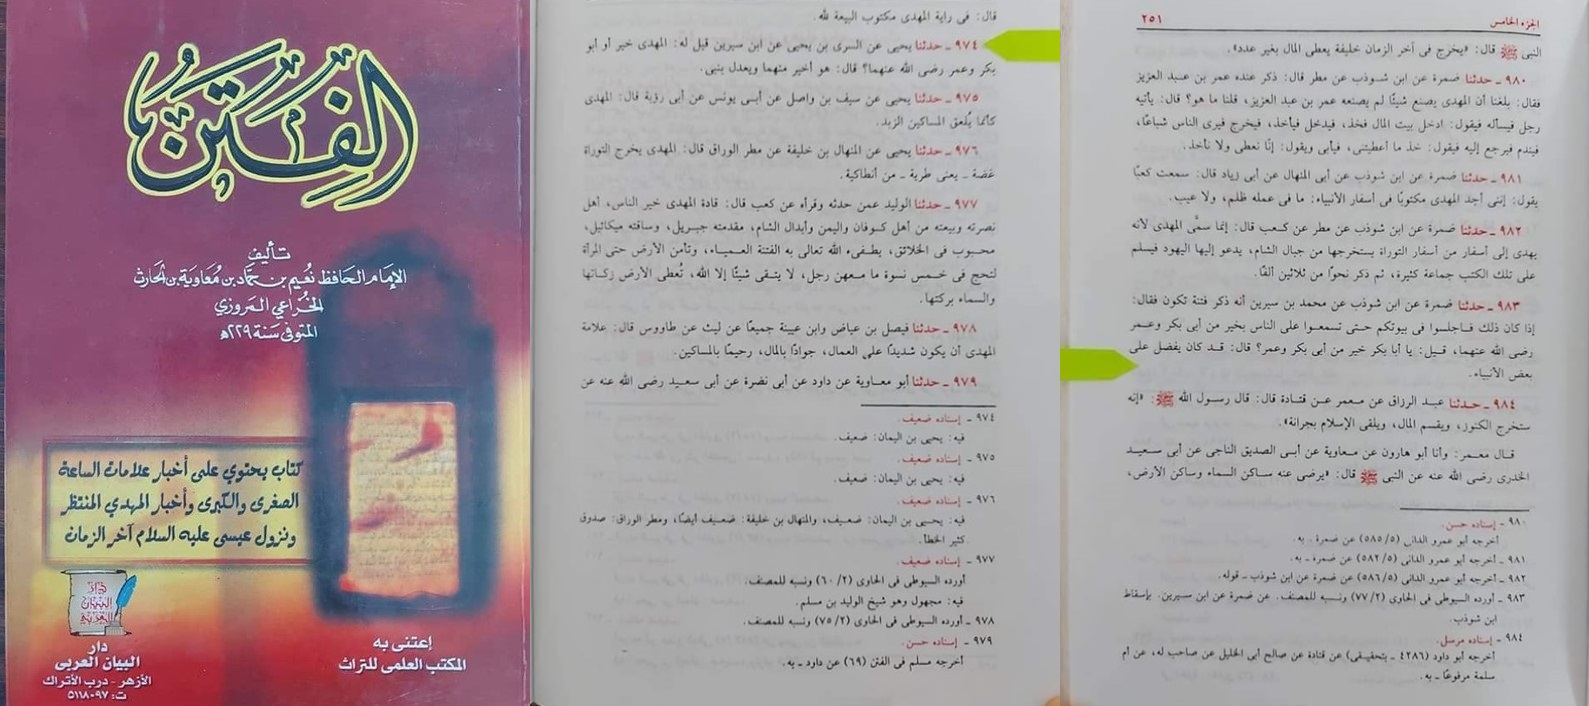 الفتن
تأليف
الإمام الحافظ نعيم بن حماد بن معاوية بن الحارث
الخزاعي المروزي
المتوفى سنة ٢٢٩ھ
كتاب يحتوي على أخبار علامات الساعة
الصغرى والكبرى وأخبار المهدي المنتظر
ونزول عيسى عليه السلام آخر الزمان
دار
البيان
العربي
دار
البيان العربى
الأزهر - درب الأتراك
ت: ٥١١٨٠٩٧
إعتنى به
المكتب العلمى للتراث
قال: فى راية المهدى مكتوب البيعة لله.
٩٧٤ ـ حدثنا يحيى عن السرى بن يحيى عن ابن سيرين قيل له: المهدى خير أو أبو
بكر وعمر رضى الله عنهما؟ قال: هو أخير منهما ويعدل بنبى.
٩٧٥ ـ حدثنا يحيى عن سيف بن واصل عن أبى يونس عن أبى رؤبة قال: المهدى
كأنما يُلعق المساكين الزبد.
٩٧٦ ـ حدثنا يحيى عن المنهال بن خليفة عن مطر الوراق قال: المهدى يخرج التوراة
غضة ـ يعنى طرية ـ من أنطاكية.
٩٧٧ ـ حدثنا الوليد عمن حدثه وقرأه عن كعب قال: قادة المهدى خير الناس، أهل
نصرته وبيعته من أهل كوفان واليمن وأبدال الشام، مقدمته جبريل، وساقته ميكائيل،
محبوب فى الخلائق، يطفىء الله تعالى به الفتنة العمياء، وتأمن الأرض حتى المرأة
لتحج فى خمس نسوة ما معهن رجل، لا يتقى شيئًا إلا الله، تُعطى الأرض زكاتها
والسماء بركتها.
٩٧٨ ـ حدثنا فيصل بن عياض وابن عيينة جميعًا عن ليث عن طاووس قال: علامة
المهدى أن يكون شديدًا على العمال، جوادًا بالمال، رحيمًا بالمساكين.
٩٧٩ ـ حدثنا أبو معاوية عن داود عن أبى نضرة عن أبى سعيد رضى الله عنه عن
٩٧٤ ـ إسناده ضعيف.
فيه: يحيى بن اليمان: ضعيف.
٩٧٥ ـ إسناده ضعيف.
فيه: يحيى بن اليمان: ضعيف.
٩٧٦ ـ إسناده ضعيف.
فيه: يحيى بن اليمان: ضعيف، والمنهال بن خليفة: ضعيف أيضًا، ومطر الوراق: صدوق
كثير الخطأ.
٩٧٧ ـ إسناده ضعيف.
أورده السيوطى فى الحاوى (٢/ ٦٠) ونسبه للمصنف.
فيه: مجهول وهو شيخ الوليد بن مسلم.
٩٧٨ ـ أورده السيوطى فى الحاوى (٢/ ٧٥) ونسبه للمصنف.
٩٧٩ ـ إسناده حسن.
أخرجه مسلم فى الفتن (٦٩) عن داود ـ به.
الجزء الخامس ٢٥١
النبى ﷺ قال: «يخرج فى آخر الزمان خليفة يعطى المال بغير عدد».
٩٨٠ ـ حدثنا ضمرة عن ابن شوذب عن مطر قال: ذكر عنده عمر بن عبد العزيز
فقال: بلغنا أن المهدى يصنع شيئًا لم يصنعه عمر بن عبد العزيز، قلنا ما هو؟ قال: يأتيه
رجل فيسأله فيقول: ادخل بيت المال فخذ، فيدخل فيأخذ، فيخرج فيرى الناس شباعًا،
فيندم فيرجع إليه فيقول: خذ ما أعطيتنى، فيأبى ويقول: إنّا نعطى ولا نأخذ.
٩٨١ ـ حدثنا ضمرة عن ابن شوذب عن أبى المنهال عن أبى زياد قال: سمعت كعبًا
يقول: إننى أجد المهدى مكتوبًا فى أسفار الأنبياء: ما فى عمله ظلم، ولا عيب.
٩٨٢ ـ حدثنا ضمرة عن ابن شوذب عن مطر عن كعب قال: إنما سمَّى المهدى لأنه
يهدى إلى أسفار من أسفار التوراة يستخرجها من جبال الشام، يدعو إليها اليهود فيسلم
على تلك الكتب جماعة كثيرة، ثم ذكر نحوًا من ثلاثين ألفًا.
٩٨٣ ـ حدثنا ضمرة عن ابن شوذب عن محمد بن سيرين أنه ذكر فتنة تكون فقال:
إذا كان ذلك فاجلسوا فى بيوتكم حتى تسمعوا على الناس بخير من أبى بكر وعمر
رضى الله عنهما، قيل: يا أبا بكر خير من أبى بكر وعمر؟ قال: قد كان يفضل على
بعض الأنبياء.
٩٨٤ ـ حدثنا عبد الرزاق عن معمر عن قتادة قال: قال رسول الله ﷺ: «إنه
ستخرج الكنوز، ويقسم المال، ويلقى الإسلام بجرانه».
قال معمر: وأنا أبو هارون عن معاوية عن أبى الصديق الناجى عن أبى سعيد
الخدرى رضى الله عنه عن النبى ﷺ قال: «يرضى عنه ساكن السماء وساكن الأرض،
٩٨٠ ـ إسناده حسن.
أخرجه أبو عمرو الدانى (٥/ ٥٨٥) عن ضمرة . به.
٩٨١ ـ أخرجه أبو عمرو الدانى (٥/ ٥٨٢) عن ضمرة ـ به.
٩٨٢ ـ أخرجه أبو عمرو الدانى (٥/ ٥٨٦) عن ضمرة عن ابن شوذب ـ قوله.
٩٨٣ ـ أورده السيوطى فى الحاوى (٢/ ٧٧) ونسبه للمصنف. عن ضمرة عن ابن سيرين. بإسقاط
ابن شوذب.
٩٨٤ ـ إسناده مرسل.
أخرجه أبو داود (٤٢٨٦ ـ بتحقيقى) عن قتادة عن صالح أبى الخليل عن صاحب له، عن أم
سلمة مرفوعًا ـ به.